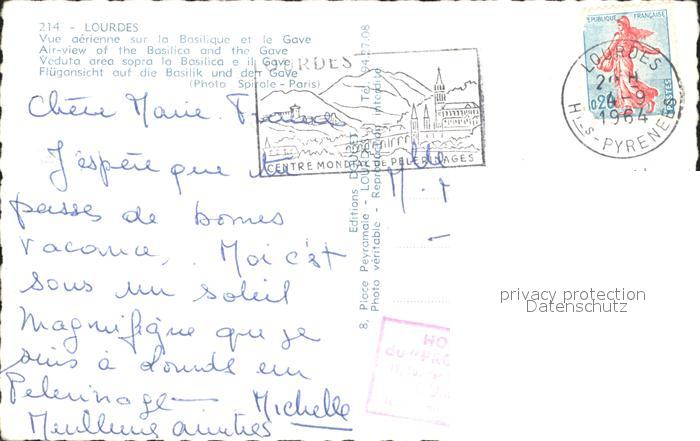 214 - LOURDES
Vue aérienne sur la Basilique et le Gave
Air-view of the Basilica and the Gave
Veduta area sopra la Basilica e il Gave
Flügansicht auf die Basilik und der Gave
(Photo Spirale - Paris)
Chère Marie
J'espère que tu
passes de bonnes
vacance. Moi c'est
sous un soleil
magnifique que je
suis à Lourdes en
Pelerinage
Michelle
Meilleurs amitiés
LOURDES
CENTRE MONDIAL DE PELERINAGES
Editions
8, Place Peyramale - LOURDES
Photo véritable - Reproduction interdite
REPUBLIQUE FRANÇAISE
0,20
POSTES
LOURDES
1964
HTES-PYRENEES
Mlle
M.
HO
du "PRO
privacy protection
Datenschutz